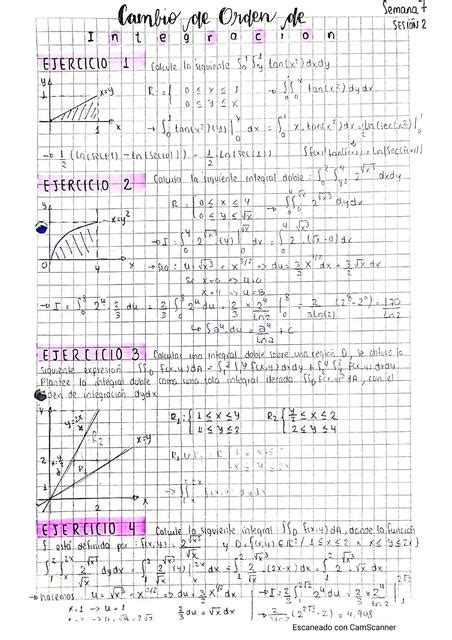 Cambio de Orden de
Integracion
Semana 7
SESIÓN 2
EJERCICIO 1 Calcule la siguiente ∫₀¹∫ᵧ¹ tan(x²) dxdy
R = { 0 ≤ x ≤ 1
0 ≤ y ≤ x
→ ∫₀¹∫₀ˣ tan(x²) dydx
x=y
→ ∫₀¹ tan(x²)(y)|₀ˣ dx = ∫₀¹ x.tan(x²)dx = ln(sec(x²))|₀¹
→ 1/2 (ln(sec(1)) - ln(sec(0))) = 1/2 ln(sec(1))
EJERCICIO 2 Calcula la siguiente integral doble: ∫₀²∫ᵧ²⁴ 2^√x³ dxdy
R = { 0 ≤ x ≤ 4
0 ≤ y ≤ √x
→ ∫₀⁴∫₀^√x 2^√x³ dydx
x=y²
→ I = ∫₀⁴ 2^√x³ (y)|₀^√x dx = ∫₀⁴ 2^√x³ (√x-0) dx
u = √x³ = x^3/2 → du = 3/2 x^1/2 dx = 3/2 √x dx
x=0 → u=0
x=4 → u=8
→ I = ∫₀⁸ 2^u . 2/3 du = 2/3 ∫₀⁸ 2^u du = 2/3 x 2^u/ln2 |₀⁸ = 2/3ln(2) (2⁸-2⁰) = 170/ln2
↳ ∫a^u.du = a^u/lna + c
EJERCICIO 3 Calcular una integral doble sobre una región D, se obtuvo la
siguiente expresión ∫∫D f(x,y) dA = ∫₁²
Plantee la integral doble como una sola integral iterada ∫∫D f(x,y) dA, con el
orden de integración dydx
y=2x
x=y
R₁: { 1 ≤ x ≤ y
R₂ { y/2 ≤ x ≤ 2
2 ≤ y ≤ 4
EJERCICIO 4 Calcule la siguiente integral: ∫∫D f(x,y) dA, donde la función
f está definida por: f(x,y) = 2^√x³/√x y D = {(x,y) ∈ R² / 1 ≤ x ≤ 2 ∧ x ≤ y ≤ 2x}
∫₁²∫ₓ²ˣ 2^√x³/√x dydx = ∫₁² 2^√x³/√x (y)|ₓ²ˣ dx = ∫₁² 2^√x³/√x . (2x-x) dx = ∫₁² 2^√x³ . √x dx
→ hacemos u = √x³ = x^3/2 → du = 3/2 x^1/2 dx
x=1 → u=1
2/3 du = √x dx
→ I = 2/3 ∫₁^2√2 2^u du = 2/3 x 2^u/ln2 |₁^2√2
→ 2/3ln2 (2^2√2 - 2) =
Escaneado con CamScanner